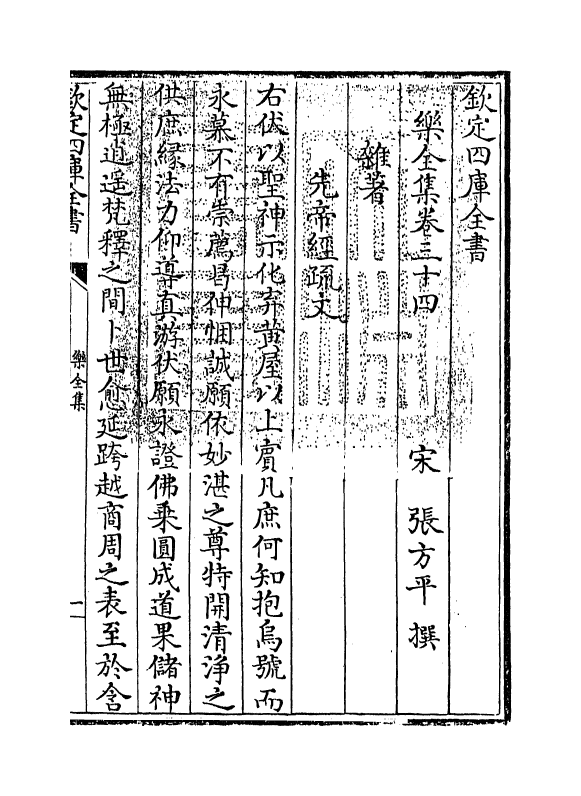 欽定四庫全書
樂全集卷三十四
宋 張方平 撰
雜著
先帝經疏文
右伏以聖神示化弃黄屋以上賓凡庶何知抱烏號而
永慕不有崇薦曷伸悃誠願依妙湛之尊特開清淨之
供庶緣法力仰導真游伏願永證佛乗圓成道果儲神
無極逍遥梵釋之間卜世愈延跨越商周之表至於含
欽定四庫全書
樂全集
一